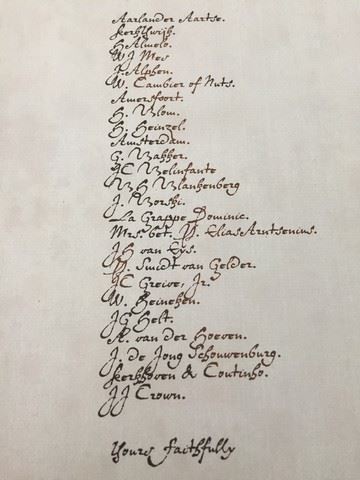 Aarlander Aartse.
Kerkwijk.
H Almelo.
W J Mes
P. Alphen.
W. Cambier of Nuts.
Amersfoort.
H. Blom.
H. Heinzel.
Amsterdam.
G. Bakker.
J C Belinfante
W H Blankenberg
J. Borski.
La Grappe Dominic.
Mrs. bet. D. Elias Arntsenius.
J H van Eys.
D. Smidt van Gelder.
J C Greive, Jr.
W. Heineken.
J G Helt.
A. van der Hoeven.
J. de Jong Schouwenburg.
Kerkhoven & Coutinho.
J J Crown.
Yours faithfully